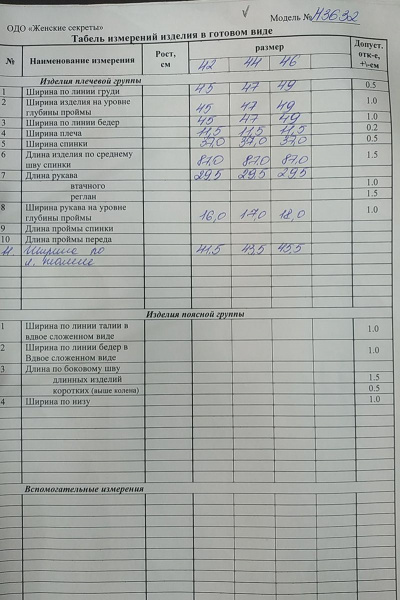 ОДО «Женские секреты»
Модель № 43632
Табель измерений изделия в готовом виде
№ Наименование измерения Рост, см размер Допуст. отк-е, +\-см
42 44 46
Изделия плечевой группы
1 Ширина по линии груди 45 47 49 0.5
2 Ширина изделия на уровне
глубины проймы 45 47 49 1.0
3 Ширина по линии бедер 45 47 49 1.0
4 Ширина плеча 11,5 11,5 11,5 0.2
5 Ширина спинки 37,0 37,0 37,0 0.5
6 Длина изделия по среднему
шву спинки 87,0 87,0 87,0 1.5
7 Длина рукава 29,5 29,5 29,5
втачного 1.0
реглан 1.5
8 Ширина рукава на уровне
глубины проймы 16,0 17,0 18,0 1.0
9 Длина проймы спинки
10 Длина проймы переда
11. Ширина по 41,5 43,5 45,5
л. талии
Изделия поясной группы
1 Ширина по линии талии в
вдвое сложенном виде 1.0
2 Ширина по линии бедер в
Вдвое сложенном виде 1.0
3 Длина по боковому шву
длинных изделий 1.5
коротких (выше колена) 0.5
4 Ширина по низу 1.0
Вспомогательные измерения